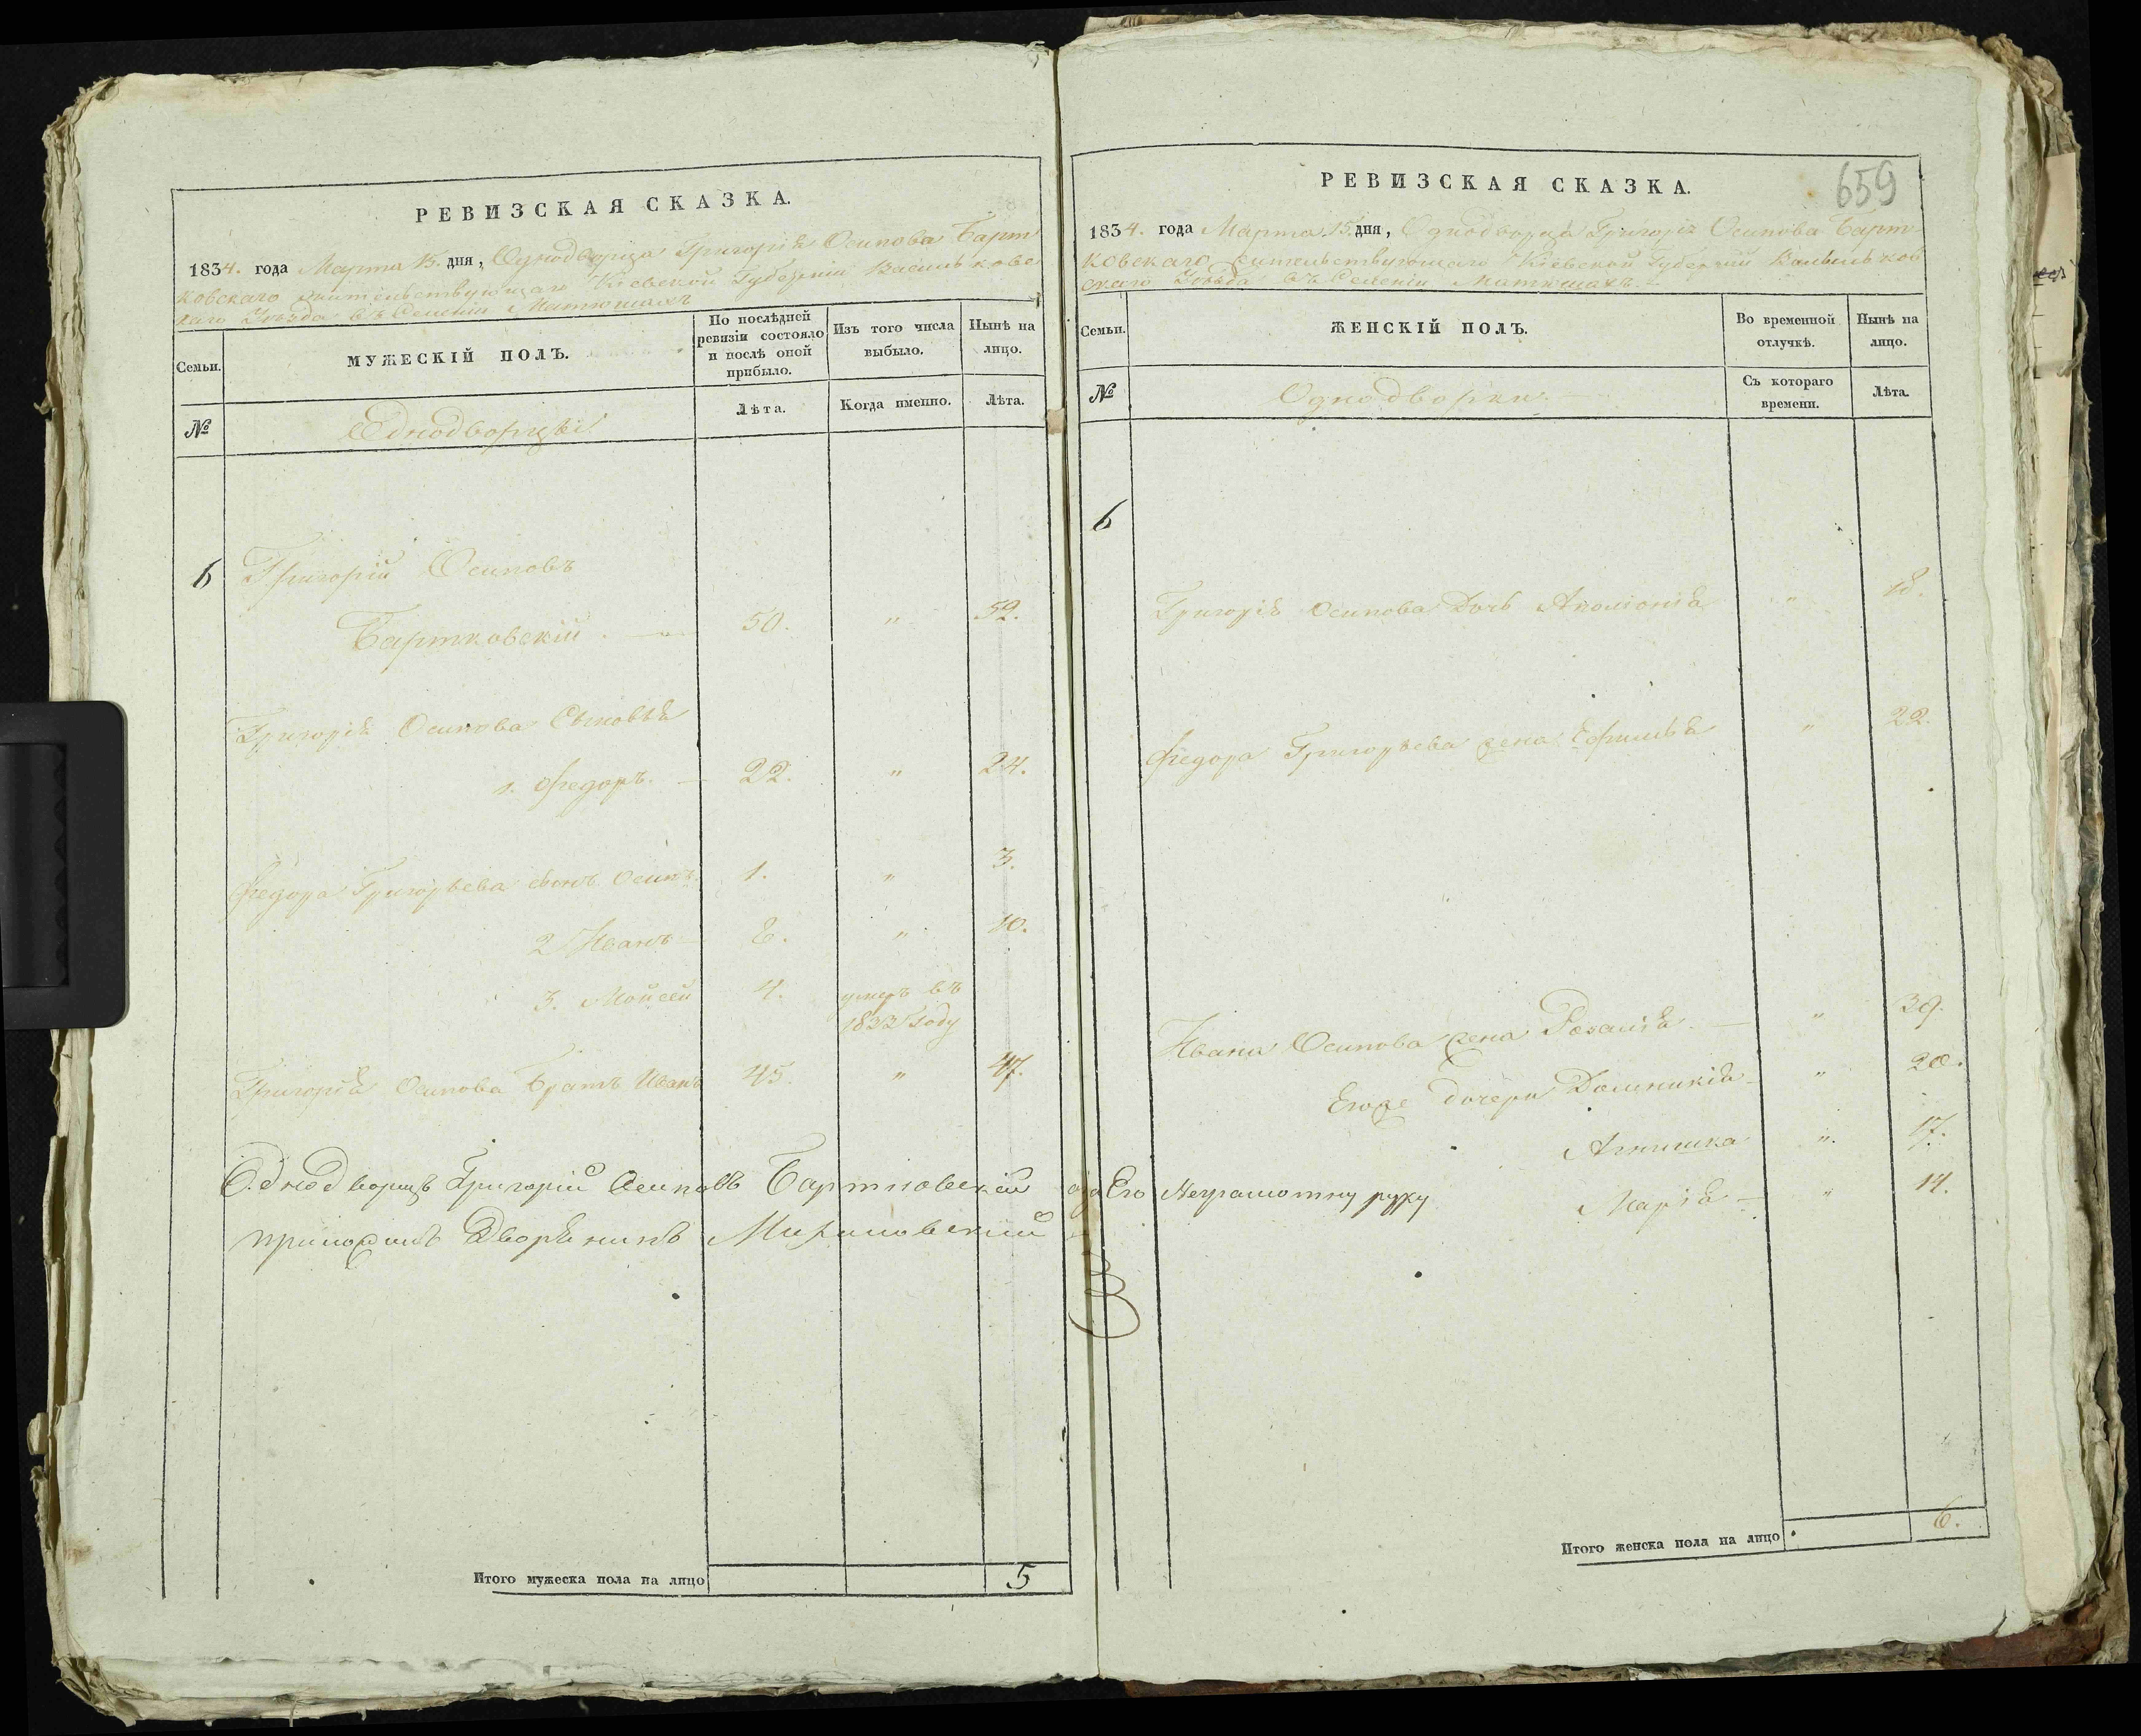 РЕВИЗСКАЯ СКАЗКА.
1834. года Марта 15. дня, Однодворца Григорія Осипова Барт
ковскаго жительствующаго Кіевской Губерніи Васильковс
каго Уѣзда въ Селеніи Матюшахъ
Семьи.
МУЖЕСКІЙ ПОЛЪ.
По послѣдней ревизіи состояло и послѣ оной прибыло.
Изъ того числа выбыло.
Нынѣ на лицо.
№
Однодворцы
Лѣта.
Когда именно.
Лѣта.
6 Григорій Осиповъ
Бартковскій. 50. " 52.
Григорія Осипова Сыновья
1. Федоръ. 22. " 24.
Федора Григорьева сынъ Осипъ 1. " 3.
2 Иванъ 8. " 10.
3. Мойсей 4. умеръ въ
1833 году
Григорія Осипова Братъ Иванъ 45. " 47.
Однодворецъ Григорій Осиповъ Бартковскій а за Его Неграмотну руку
приложилъ Дворянинъ
Итого мужеска пола на лицо 5
РЕВИЗСКАЯ СКАЗКА.
659
1834. года Марта 15. дня, Однодворца Григорія Осипова Барт
ковскаго жительствующаго Кіевской Губерніи Васильков
скаго Уѣзда въ Селеніи Матюшахъ.
Семьи.
ЖЕНСКІЙ ПОЛЪ.
Во временной отлучкѣ.
Нынѣ на лицо.
№
Однодворки.
Съ котораго времени.
Лѣта.
6
Григорія Осипова Дочь Аполонія " 18.
Федора Григорьева жена " 22.
Ивана Осипова жена Розалія. " 39.
Егоже дочери Доминикія " 20.
" 17.
Марія " 14.
Итого женска пола на лицо 6.